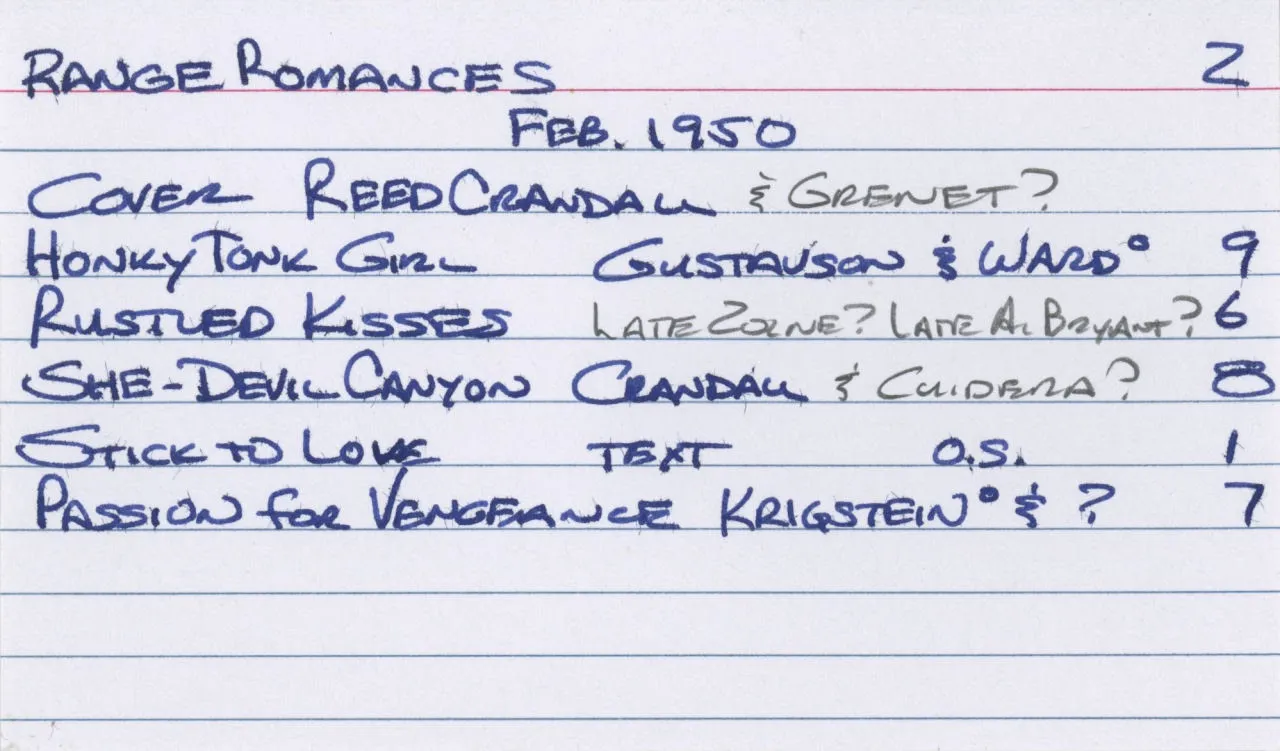 RANGE ROMANCES 2
FEB. 1950
COVER REED CRANDALL & GRENET?
HONKY TONK GIRL GUSTAVSON & WARD° 9
RUSTLED KISSES LATE ZOLNE? LATE AL BRYANT? 6
SHE-DEVIL CANYON CRANDALL & CUIDERA? 8
STICK TO LOVE TEXT O.S. 1
PASSION FOR VENGEANCE KRIGSTEIN° & ? 7